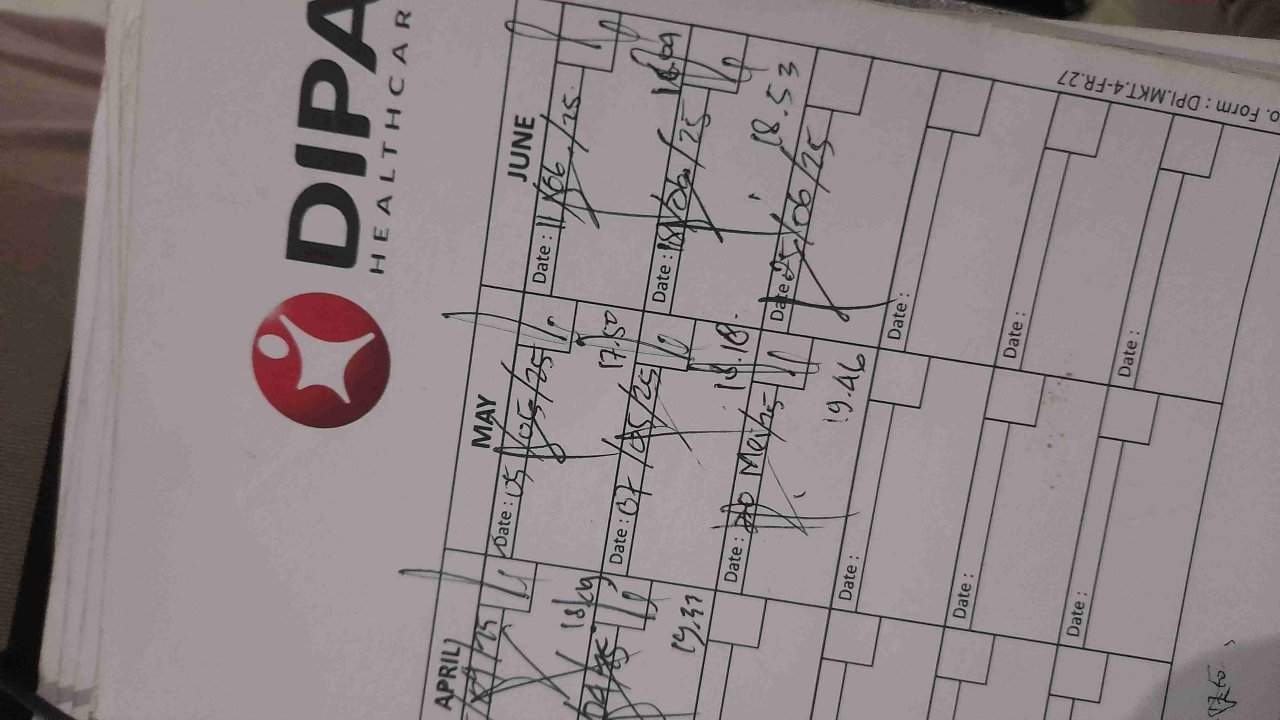 DIPA
HEALTHCAR
APRIL
MAY
JUNE
Date : 05/05/25
Date : 11/06/25
18.29
17.50
18.09
Date : 07/05/25
Date : 18/06/25
19.37
18.18.
18.53
Date : 20 Mei/25
Date : 25/06/25
19.46
Date :
Date :
Date :
Date :
Date :
Date :
o. Form : DPI.MKT.4-FR.27